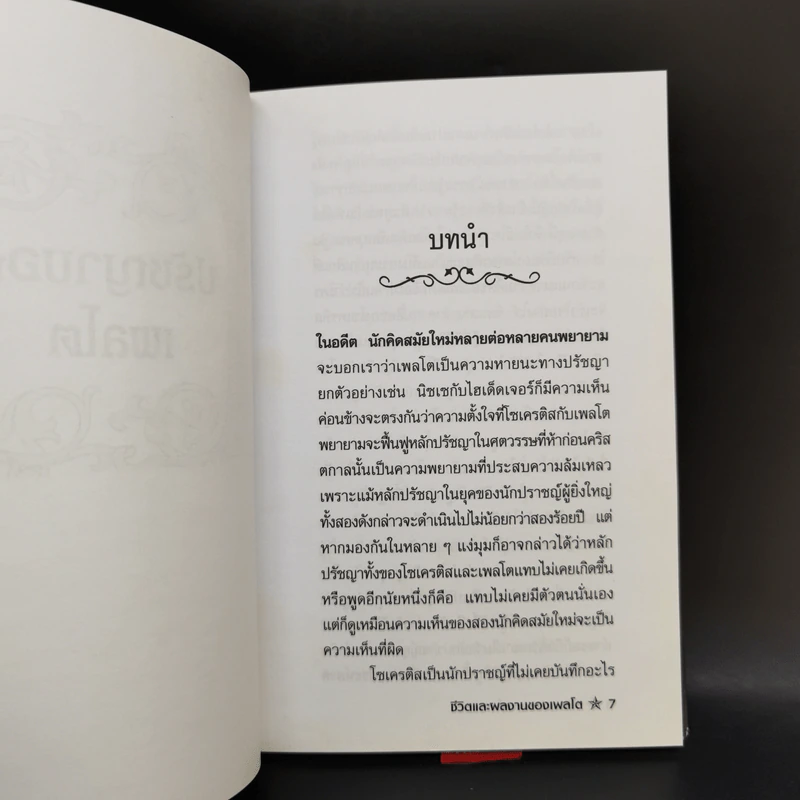 บทนำ
ในอดีต นักคิดสมัยใหม่หลายต่อหลายคนพยายาม
จะบอกเราว่าเพลโตเป็นความหายนะทางปรัชญา
ยกตัวอย่างเช่น นิชเชกับไฮเด็ดเจอร์ก็มีความเห็น
ค่อนข้างจะตรงกันว่าความตั้งใจที่โซเครติสกับเพลโต
พยายามจะฟื้นฟูหลักปรัชญาในศตวรรษที่ห้าก่อนคริส
ตกาลนั้นเป็นความพยายามที่ประสบความล้มเหลว
เพราะแม้หลักปรัชญาในยุคของนักปราชญ์ผู้ยิ่งใหญ่
ทั้งสองดังกล่าวจะดำเนินไปไม่น้อยกว่าสองร้อยปี แต่
หากมองกันในหลาย ๆ แง่มุมก็อาจกล่าวได้ว่าหลัก
ปรัชญาทั้งของโซเครติสและเพลโตแทบไม่เคยเกิดขึ้น
หรือพูดอีกนัยหนึ่งก็คือ แทบไม่เคยมีตัวตนนั่นเอง
แต่ก็ดูเหมือนความเห็นของสองนักคิดสมัยใหม่จะเป็น
ความเห็นที่ผิด
โซเครติสเป็นนักปราชญ์ที่ไม่เคยบันทึกอะไร
ชีวิตและผลงานของเพลโต ☆ 7